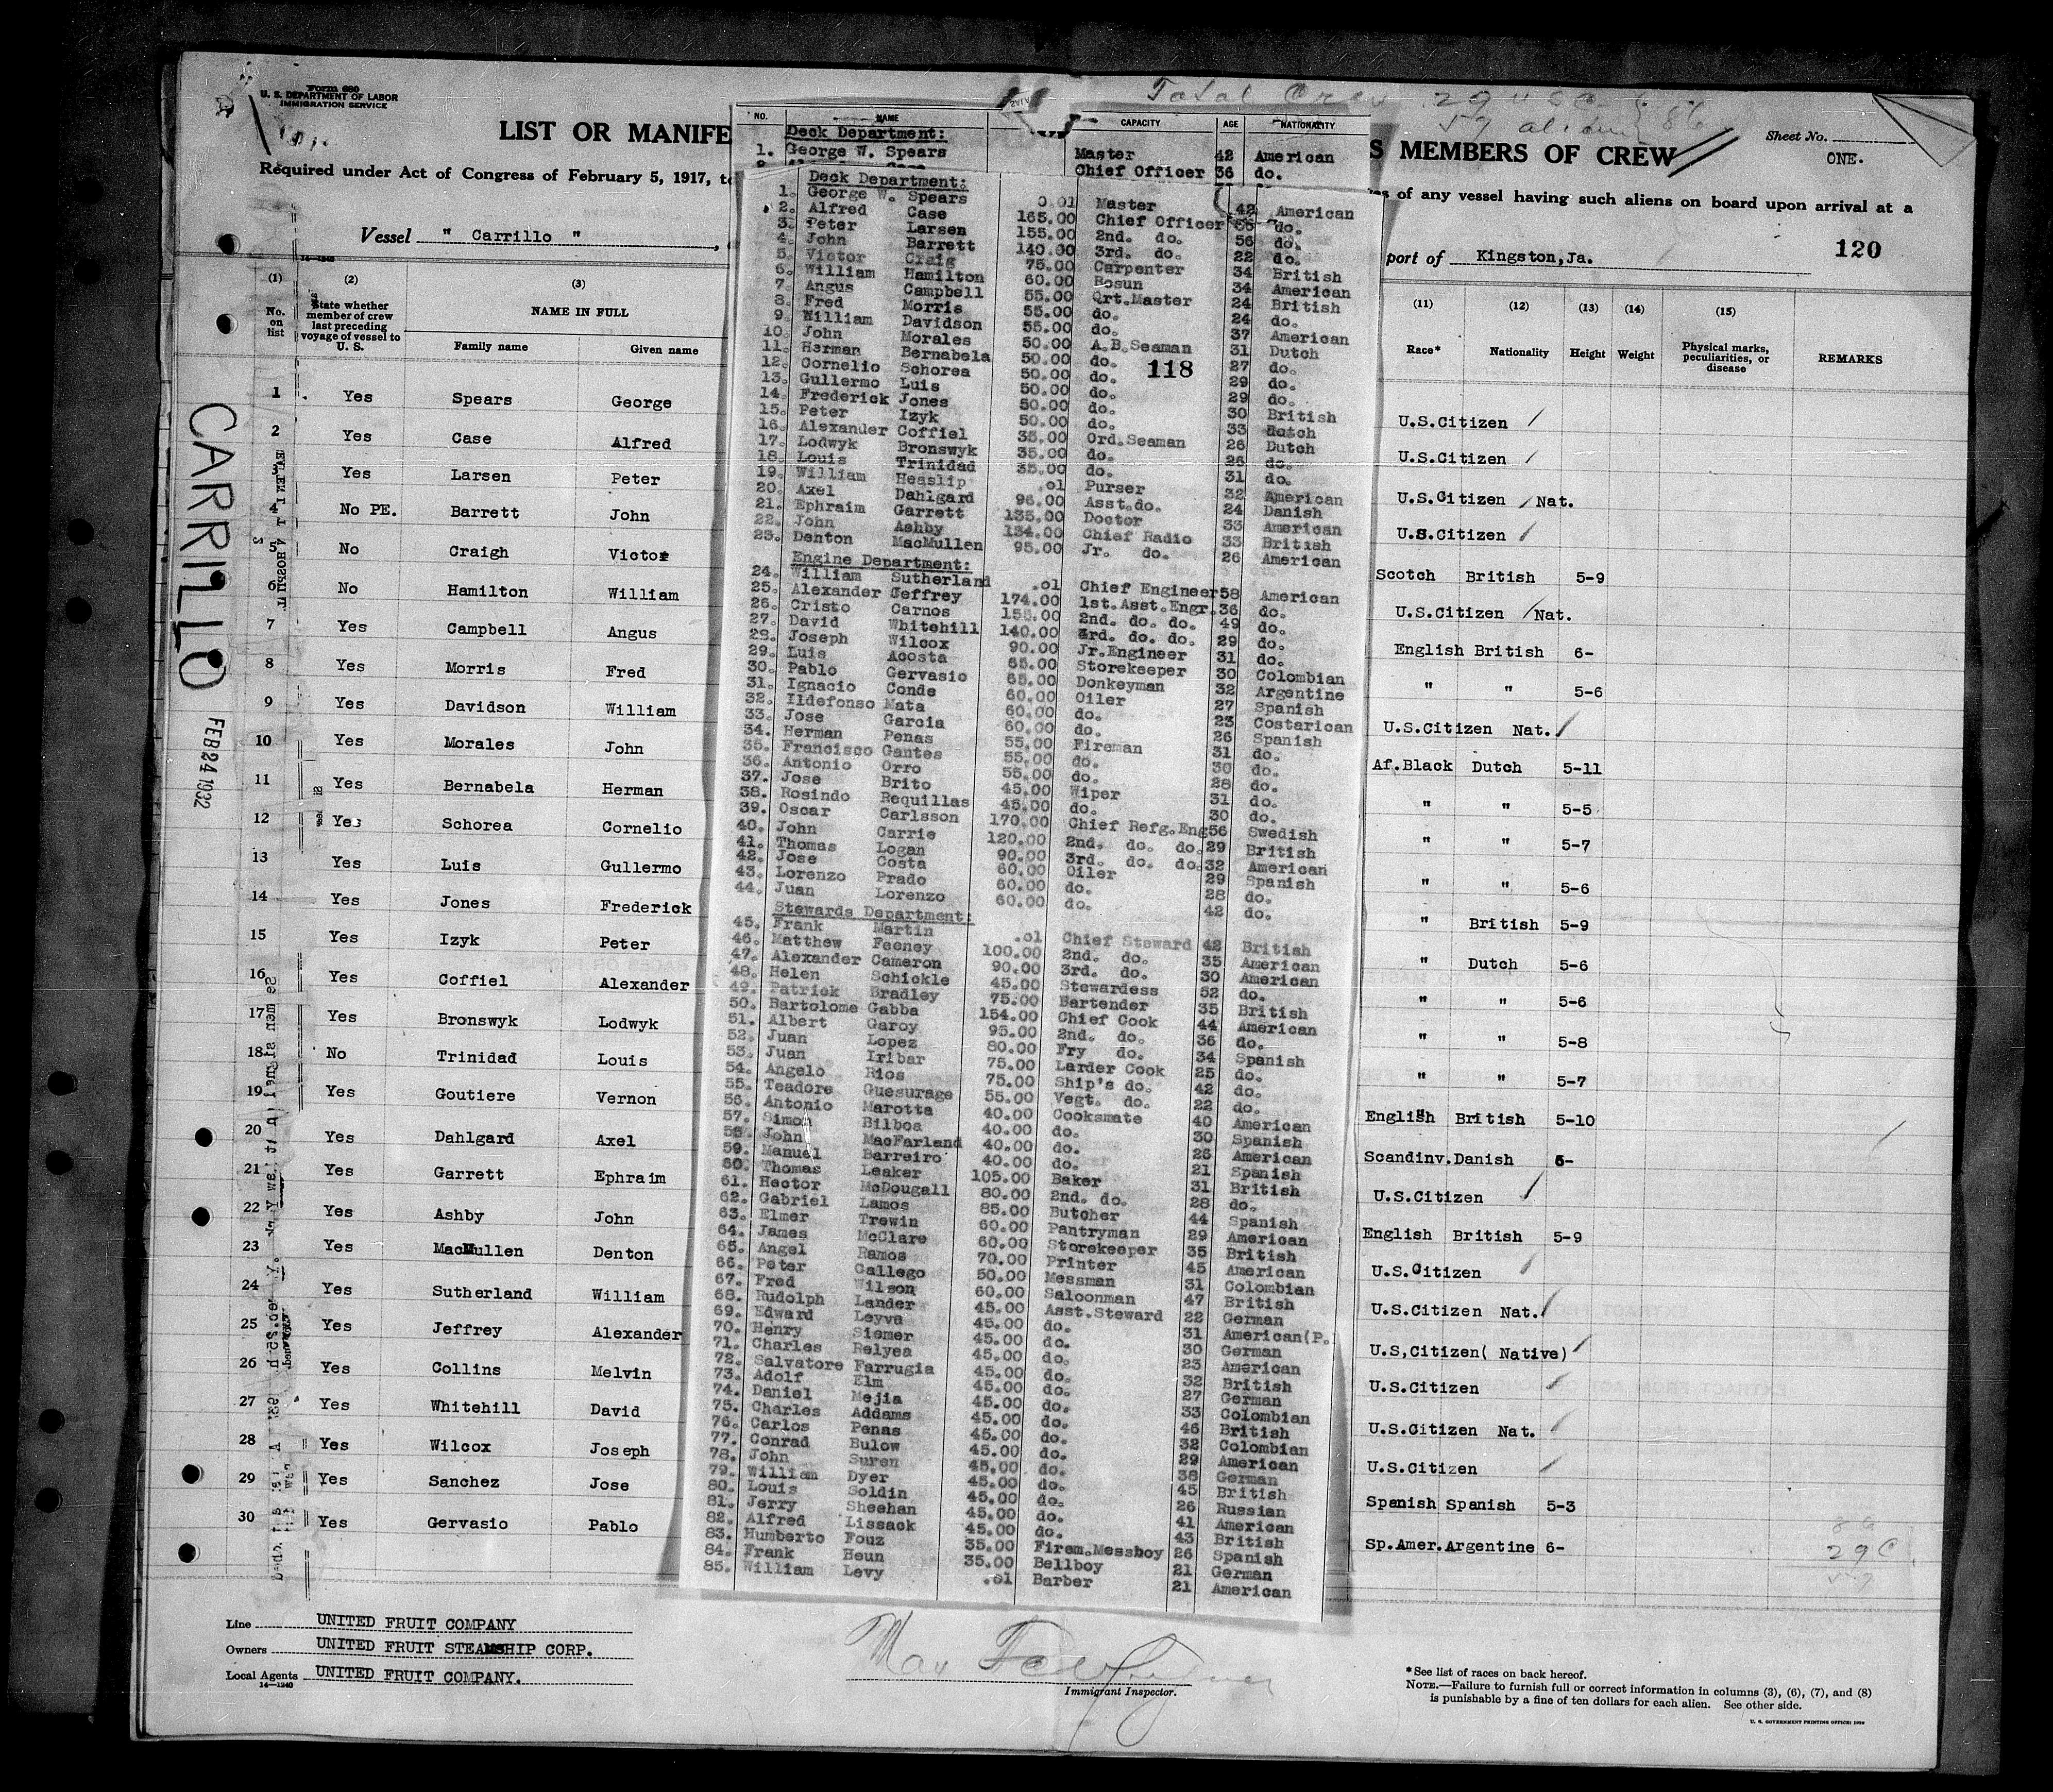 Form 680
U. S. DEPARTMENT OF LABOR
IMMIGRATION SERVICE
Total Crew 29 U SC
57 aliens } 86
Sheet No. ONE.
LIST OR MANIFE
S MEMBERS OF CREW
Required under Act of Congress of February 5, 1917, to
of any vessel having such aliens on board upon arrival at a
Vessel " Carrillo "
port of Kingston,Ja.
120
CARRILLO
FEB 24 1932
(1) (2) (3)
No. on list
State whether member of crew last preceding voyage of vessel to U. S.
NAME IN FULL
Family name Given name
1 Yes Spears George
2 Yes Case Alfred
3 Yes Larsen Peter
4 No PE. Barrett John
5 No Craigh Victor
6 No Hamilton William
7 Yes Campbell Angus
8 Yes Morris Fred
9 Yes Davidson William
10 Yes Morales John
11 Yes Bernabela Herman
12 Yes Schorea Cornelio
13 Yes Luis Gullermo
14 Yes Jones Frederick
15 Yes Izyk Peter
16 Yes Coffiel Alexander
17 Yes Bronswyk Lodwyk
18 No Trinidad Louis
19 Yes Goutiere Vernon
20 Yes Dahlgard Axel
21 Yes Garrett Ephraim
22 Yes Ashby John
23 Yes MacMullen Denton
24 Yes Sutherland William
25 Yes Jeffrey Alexander
26 Yes Collins Melvin
27 Yes Whitehill David
28 Yes Wilcox Joseph
29 Yes Sanchez Jose
30 Yes Gervasio Pablo
NO. NAME CAPACITY AGE NATIONALITY
Deck Department:
1. George W. Spears Master 42 American
Chief Officer 36 do.
Deck Department:
1. George W. Spears 0.01 Master 42 American
2. Alfred Case 165.00 Chief Officer 36 do.
3. Peter Larsen 155.00 2nd. do. 56 do.
4. John Barrett 140.00 3rd. do. 22 do.
5. Victor Craig 75.00 Carpenter 34 British
6. William Hamilton 60.00 Bosun 34 American
7. Angus Campbell 55.00 Qrt.Master 24 British
8. Fred Morris 55.00 do. 24 do.
9. William Davidson 55.00 do. 37 American
10. John Morales 50.00 A.B.Seaman 31 Dutch
11. Herman Bernabela 50.00 do. 27 do.
118
12. Cornelio Schorea 50.00 do. 29 do.
13. Gullermo Luis 50.00 do. 29 do.
14. Frederick Jones 50.00 do. 30 British
15. Peter Izyk 50.00 do. 33 Dutch
16. Alexander Coffiel 35.00 Ord.Seaman 26 Dutch
17. Lodwyk Bronswyk 35.00 do. 26 do.
18. Louis Trinidad 35.00 do. 31 do.
19. William Heaslip .01 Purser 32 American
20. Axel Dahlgard 96.00 Asst.do. 24 Danish
21. Ephraim Garrett 135.00 Doctor 33 American
22. John Ashby 134.00 Chief Radio 33 British
23. Denton MacMullen 95.00 Jr. do. 26 American
Engine Department:
24. William Sutherland .01 Chief Engineer 58 American
25. Alexander Jeffrey 174.00 1st.Asst.Engr. 36 do.
26. Cristo Carnos 155.00 2nd. do. do. 49 do.
27. David Whitehill 140.00 3rd. do. do. 29 do.
28. Joseph Wilcox 90.00 Jr.Engineer 31 do.
29. Luis Acosta 65.00 Storekeeper 30 Colombian
30. Pablo Gervasio 65.00 Donkeyman 32 Argentine
31. Ignacio Conde 60.00 Oiler 27 Spanish
32. Ildefonso Mata 60.00 do. 23 Costarican
33. Jose Garcia 60.00 do. 26 Spanish
34. Herman Penas 55.00 Fireman 31 do.
35. Francisco Gantes 55.00 do. 30 do.
36. Antonio Orro 55.00 do. 28 do.
37. Jose Brito 45.00 Wiper 31 do.
38. Rosindo Requillas 45.00 do. 30 do.
39. Oscar Carlsson 170.00 Chief Refg.Eng 56 Swedish
40. John Carrie 120.00 2nd. do. do. 29 British
41. Thomas Logan 90.00 3rd. do. do. 32 American
42. Jose Costa 60.00 Oiler 29 Spanish
43. Lorenzo Prado 60.00 do. 28 do.
44. Juan Lorenzo 60.00 do. 42 do.
Stewards Department:
45. Frank Martin .01 Chief Steward 42 British
46. Matthew Feeney 100.00 2nd. do. 35 American
47. Alexander Cameron 90.00 3rd. do. 30 American
48. Helen Schickle 45.00 Stewardess 52 do.
49. Patrick Bradley 75.00 Bartender 35 British
50. Bartolome Gabba 154.00 Chief Cook 44 American
51. Albert Garoy 95.00 2nd. do. 36 do.
52. Juan Lopez 80.00 Fry do. 34 Spanish
53. Juan Iribar 75.00 Larder Cook 25 do.
54. Angelo Rios 75.00 Ship's do. 42 do.
55. Teadore Guesurage 55.00 Vegt. do. 22 do.
56. Antonio Marotta 40.00 Cooksmate 40 American
57. Simon Bilboa 40.00 do. 30 Spanish
58. John MacFarland 40.00 do. 25 American
59. Manuel Barreiro 40.00 do. 21 Spanish
60. Thomas Leaker 105.00 Baker 31 British
61. Hector McDougall 80.00 2nd. do. 28 do.
62. Gabriel Lamos 85.00 Butcher 44 Spanish
63. Elmer Trewin 60.00 Pantryman 29 American
64. James McClare 60.00 Storekeeper 35 British
65. Angel Ramos 70.00 Printer 45 American
66. Peter Gallego 50.00 Messman 31 Colombian
67. Fred Wilson 60.00 Saloonman 47 British
68. Rudolph Lander 45.00 Asst.Steward 22 German
69. Edward Leyva 45.00 do. 31 American(P.
70. Henry Siemer 45.00 do. 30 German
71. Charles Relyea 45.00 do. 23 American
72. Salvatore Farrugia 45.00 do. 32 British
73. Adolf Elm 45.00 do. 27 German
74. Daniel Mejia 45.00 do. 33 Colombian
75. Charles Addams 45.00 do. 46 British
76. Carlos Penas 45.00 do. 32 Colombian
77. Conrad Bulow 45.00 do. 29 American
78. John Suren 45.00 do. 38 German
79. William Dyer 45.00 do. 45 British
80. Louis Soldin 45.00 do. 26 Russian
81. Jerry Sheehan 45.00 do. 41 American
82. Alfred Lissack 45.00 do. 43 British
83. Humberto Fouz 35.00 Firem.Messboy 26 Spanish
84. Frank Heun 35.00 Bellboy 21 German
85. William Levy .01 Barber 21 American
(11) (12) (13) (14) (15)
Race* Nationality Height Weight Physical marks, peculiarities, or disease REMARKS
U.S.Citizen /
U.S.Citizen /
U.S.Citizen / Nat.
U.S.Citizen /
Scotch British 5-9
U.S.Citizen / Nat.
English British 6-
" " 5-6
U.S.Citizen Nat. /
Af.Black Dutch 5-11
" " 5-5
" " 5-7
" " 5-6
" British 5-9
" Dutch 5-6
" " 5-6
" " 5-8
" " 5-7
English British 5-10
Scandinv. Danish 6-
U.S.Citizen /
English British 5-9
U.S.Citizen /
U.S.Citizen Nat. /
U.S,Citizen( Native) /
U.S.Citizen /
U.S.Citizen Nat. /
U.S.Citizen /
Spanish Spanish 5-3
Sp.Amer. Argentine 6-
29 C
57
Line UNITED FRUIT COMPANY
Owners UNITED FRUIT STEAMSHIP CORP.
Local Agents UNITED FRUIT COMPANY.
14—1240
Max
Immigrant Inspector.
*See list of races on back hereof.
NOTE.—Failure to furnish full or correct information in columns (3), (6), (7), and (8)
is punishable by a fine of ten dollars for each alien. See other side.
U. S. GOVERNMENT PRINTING OFFICE: